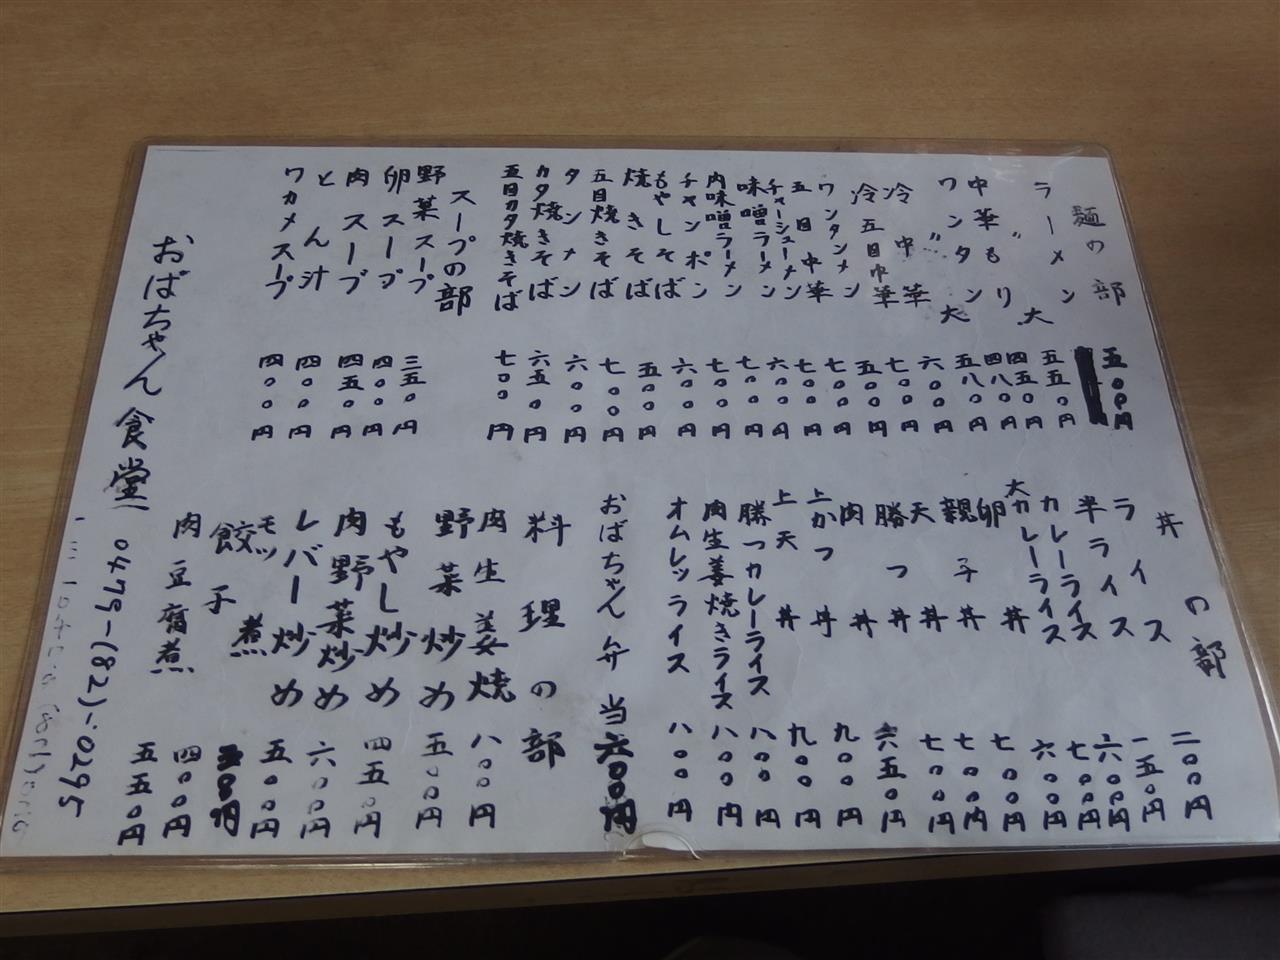 麺の部
ラーメン 五〇〇円
〃 大 五五〇円
中華もり 四五〇円
ワンタン 四八〇円
〃 大 五八〇円
冷中華 六〇〇円
冷五目中華 七〇〇円
ワンタンメン 五〇〇円
五目中華 七〇〇円
チャーシューメン 七〇〇円
味噌ラーメン 六〇〇円
肉味噌ラーメン 七〇〇円
チャンポン 七〇〇円
もやしそば 六〇〇円
焼きそば 五〇〇円
五目焼きそば 七〇〇円
タンメン 六〇〇円
カタ焼きそば 六五〇円
五目カタ焼きそば 七〇〇円
スープの部
野菜スープ 三五〇円
卵スープ 四〇〇円
肉スープ 四五〇円
とん汁 四〇〇円
ワカメスープ 四〇〇円
丼の部
ライス 二〇〇円
半ライス 一五〇円
カレーライス 六〇〇円
大カレーライス 七〇〇円
卵丼 六〇〇円
親子丼 七〇〇円
天丼 七〇〇円
勝つ丼 七〇〇円
肉丼 六五〇円
上かつ丼 九〇〇円
上天丼 九〇〇円
勝つカレーライス 八〇〇円
肉生姜焼きライス 八〇〇円
オムレッライス 八〇〇円
おばちゃん弁当 六〇〇円
料理の部
肉生姜焼 八〇〇円
野菜炒め 五〇〇円
もやし炒め 四五〇円
肉野菜炒め 六〇〇円
レバー炒め 五〇〇円
モツ煮 〇〇円
餃子 四〇〇円
肉豆腐煮 五五〇円
おばちゃん食堂 0479-(82)-0295